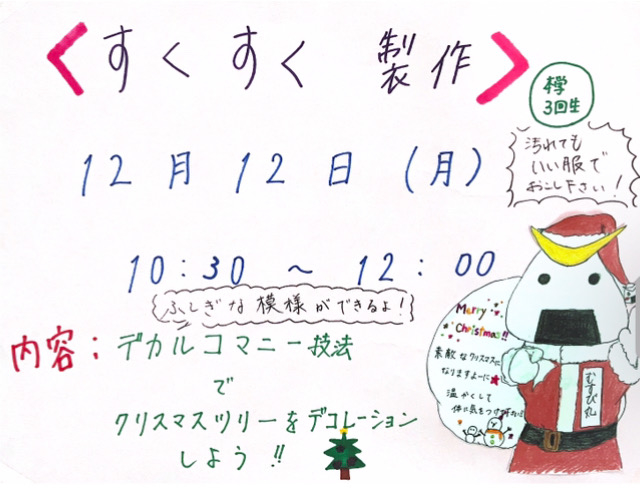 <すくすく 製作>
3回生
汚れても
いい服で
おこし下さい!
12月12日(月)
10:30 ~ 12:00
ふしぎな模様ができるよ!
内容:デカルコマニー技法
で
クリスマスツリーをデコレーション
しよう!!
Merry
Christmas!!
素敵なクリスマスに
なりますように
温かくして
体に気をつけて
むすび丸